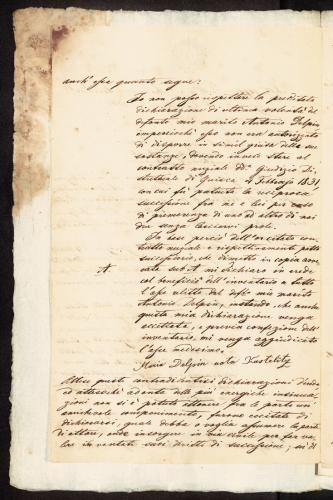 anch' essa quanto segue:
Io non posso rispettare la predetta
dichiarazione di ultima volontà del
defonto mio marito Antonio Delpin
imperciocchè esso non era autorizzato
di disporre in simil guisa della sua
sostanza, dovendo invece stare al
contratto nuziale dd.o Giudizio Di-
strettuale di 4 Febbrajo 1831,
con cui fù pattuita la reciproca
successione fra me e lui per caso
di premorienza di uno od altro di noi
due senza lasciarvi prole.
In base perciò dell' contratto
nuziale e rispettivamente patto
successorio, che dimetto in copia
sub A mi dichiaro in erede
col beneficio dell' inventario a tutto
l'asse relitto del def.o mio marito
Antonio Delpin, instando, che anche
questa mia dichiarazione venga
accettata, e previa confezione dell'
inventario, mi venga aggiudicato
l'asse medesimo.
A
Maria Delpin nata
Attese queste contradditorie dichiarazioni
ed attesocchè ad onta delle più energiche
non si è potuto ottenere fra le parti un'
amichevole componimento, furono eccitate a
dichiararsi, quale debba o voglia assumere la parte
di attore, onde insorgere in via civile per far va-
lere i vantati suoi diritti di successione; si di